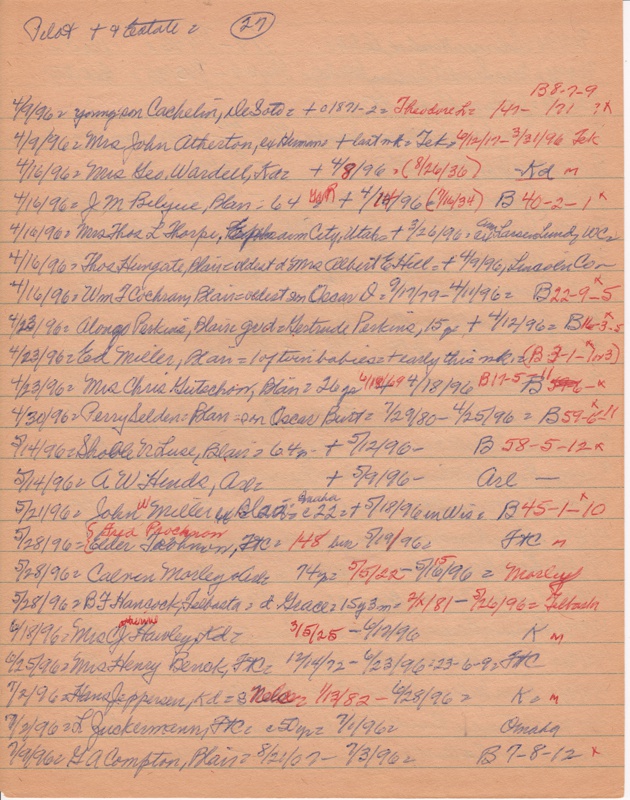 Pilot + & Estate = 27
B 8-7-9
4/9/96= young son Cachelin, DeSoto= + 01871-2= Theodore L= 147- 171 ?x
4/9/96= Mrs John Atherton, ex Hermans + last wk= Tek= 4/12/17- 3/31/96 Tek
4/16/96= Mrs Geo. Wardell, Kd= + 4/8/96= (8/26/36) Kd M
4/16/96= J M Bilyue, Blair= 64 + 4/14/96= (7/16/34) B 40-2-1 x
4/16/96= Mrs Thos L Thorpe, City, Utah= + 3/26/96= Larsen Lundy WC=
4/16/96= Thos Hungate, Blair= oldest d Mrs Albert E Hill= + 4/9/96, Lincoln Co-
4/16/96= Wm F Cochran, Blair= oldest son Oscar O= 9/17/79- 4/11/96= B 22-9-5 x
4/23/96= Alonzo Perkins, Blair= gr d= Gertrude Perkins, 15 yr + 4/12/96= B 16-3-5 x
4/23/96= Ed Miller, Blair= 1 of twin babies= + early this wk= (B 3-1-1 or 3) x
4/23/96= Mrs Chris Gutschow, Blair= 26 yr 4/18/69 4/18/96 B 17-5-11 x
4/30/96= Perry Selden= Blair= son Oscar Butt= 7/29/80- 4/25/96= B 59-6-11 x
5/14/96= V. Luse, Blair= 64 yr + 5/12/96- B 58-5-12 x
5/14/96= A W Hends, Arl= + 5/9/96- Arl —
5/21/96= John W Miller ex Blair= Omaha c 22= + 5/18/96 in Wis= B 45-1-10 x
5/28/96= Elder FtC= 148 bur 5/19/96= FtC M
5/28/96= Calvin Morley 74 yr= 5/5/22- 5/16/96 15 = Morley
5/28/96= B F Hancock, Telbasta= d Grace= 15y 3m= 2/x/81- 5/26/96= Telbasta
6/18/96= Mrs Hawley, Kd= 3/5/25- 6/17/96 K M
6/25/96= Mrs Henry Benck, FtC= 12/14/72- 6/23/96= 23-6-9= FtC
7/2/96= Hans Jeppersen, Kd= s Nels= 1/13/82- 6/28/96= K= M
7/2/96= L Juckermann, FtC= c 50 yr= 7/1/96= Omaha
7/9/96= G A Compton, Blair= 8/21/07- 7/3/96= B 7-8-12 x